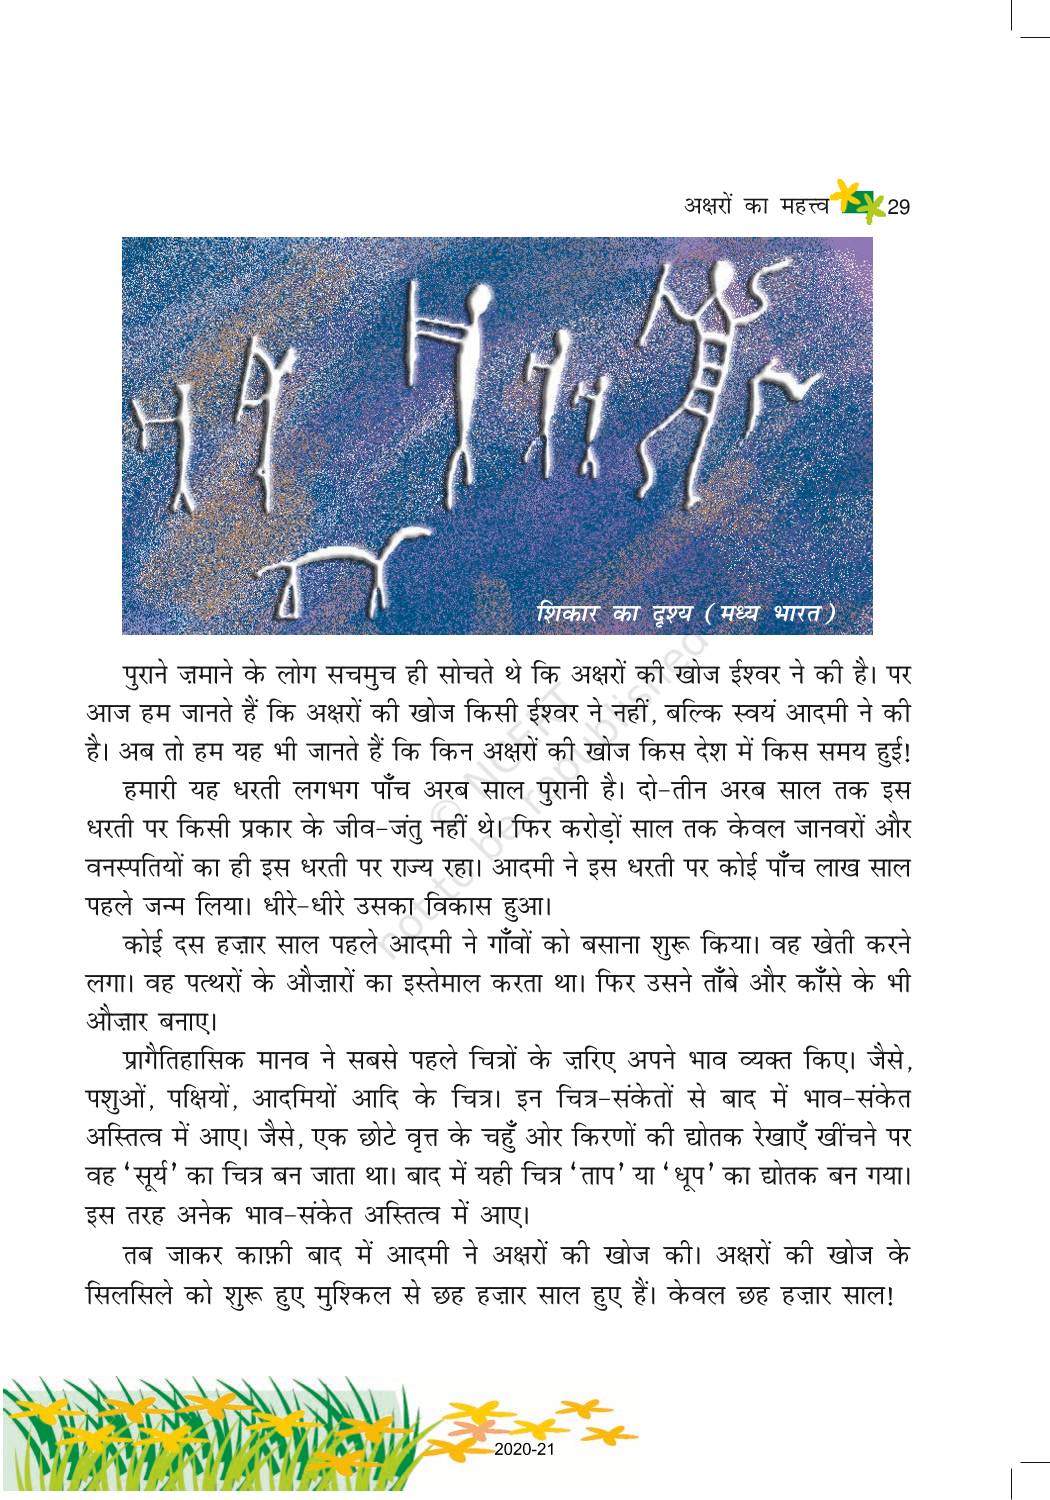 अक्षरों का महत्त्व 29
शिकार का दृश्य (मध्य भारत)
पुराने ज़माने के लोग सचमुच ही सोचते थे कि अक्षरों की खोज ईश्वर ने की है। पर
आज हम जानते हैं कि अक्षरों की खोज किसी ईश्वर ने नहीं, बल्कि स्वयं आदमी ने की
है। अब तो हम यह भी जानते हैं कि किन अक्षरों की खोज किस देश में किस समय हुई!
हमारी यह धरती लगभग पाँच अरब साल पुरानी है। दो-तीन अरब साल तक इस
धरती पर किसी प्रकार के जीव-जंतु नहीं थे। फिर करोड़ों साल तक केवल जानवरों और
वनस्पतियों का ही इस धरती पर राज्य रहा। आदमी ने इस धरती पर कोई पाँच लाख साल
पहले जन्म लिया। धीरे-धीरे उसका विकास हुआ।
कोई दस हज़ार साल पहले आदमी ने गाँवों को बसाना शुरू किया। वह खेती करने
लगा। वह पत्थरों के औज़ारों का इस्तेमाल करता था। फिर उसने ताँबे और काँसे के भी
औज़ार बनाए।
प्रागैतिहासिक मानव ने सबसे पहले चित्रों के ज़रिए अपने भाव व्यक्त किए। जैसे,
पशुओं, पक्षियों, आदमियों आदि के चित्र। इन चित्र-संकेतों से बाद में भाव-संकेत
अस्तित्व में आए। जैसे, एक छोटे वृत्त के चहुँ ओर किरणों की द्योतक रेखाएँ खींचने पर
वह ‘सूर्य’ का चित्र बन जाता था। बाद में यही चित्र ‘ताप’ या ‘धूप’ का द्योतक बन गया।
इस तरह अनेक भाव-संकेत अस्तित्व में आए।
तब जाकर काफ़ी बाद में आदमी ने अक्षरों की खोज की। अक्षरों की खोज के
सिलसिले को शुरू हुए मुश्किल से छह हज़ार साल हुए हैं। केवल छह हज़ार साल!
© NCERT
not to be republished
2020-21